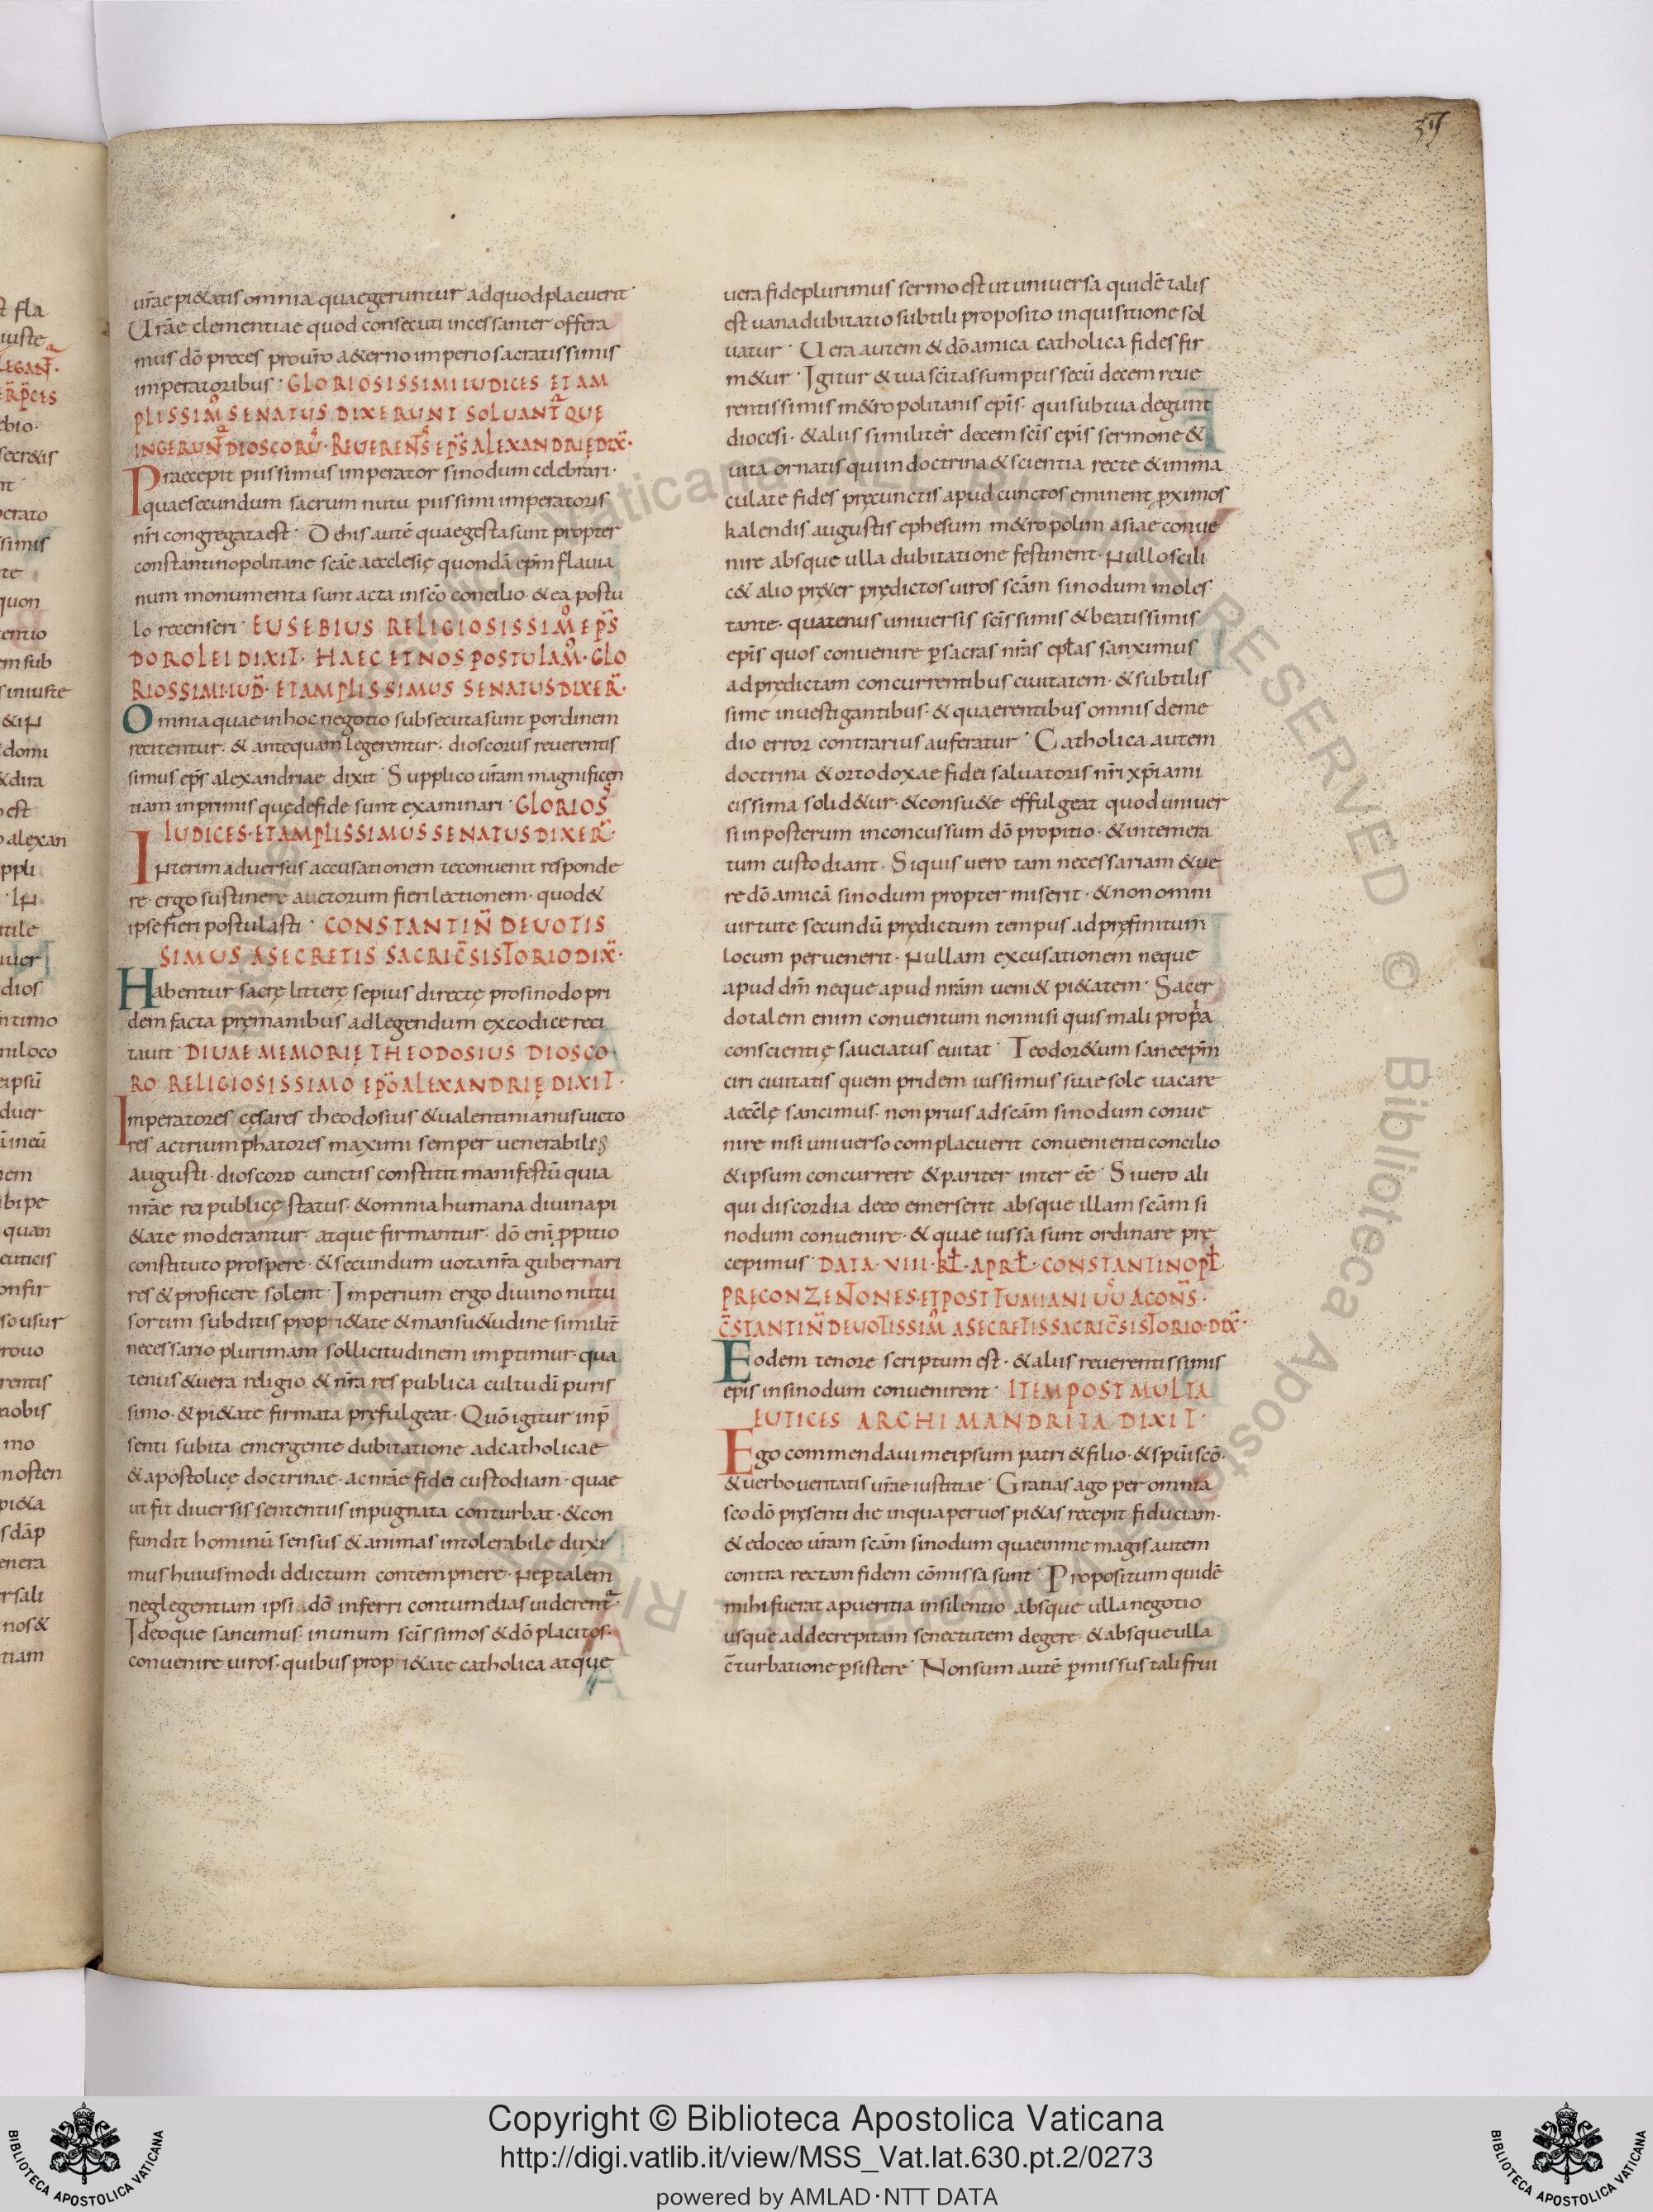 ur̄ae pi&atis omnia quae geruntur ad quod placuerit
Ur̄ae clementiae quod consecuti incessanter offera
mus dō preces pro ur̄o a&erno imperio sacratissimis
imperatoribus · GLORIOSISSIMI IUDICES ET AM
PLISSIM SENATUS DIXERUNT SOLUANT QUE
INGERUNT DIOSCORŪ · REUERENS EPS ALEXANDRIĘ DIX̄ ·
Praecepit piissimus imperator sinodum celebrari ·
quae secundum sacrum nutu piissimi imperatoris
nr̄i congregata est · De his autē quae gesta sunt propter
constantinopolitane scāe aecclesię quondā ep̄m flauia
num monumenta sunt acta in scō concilio · & ea postu
lo recenseri · EUSEBIUS RELIGIOSISSIM EP̄S
DOROLEI DIXIT · HAEC ET NOS POSTULAM · GLO
RIOSSIMI · IUD̄ · ET AMPLISSIMUS SENATUS DIXER̄ ·
Omnia quae in hoc negotio subsecuta sunt per ordinem
recitentur · & antequam legerentur · dioscorus reuerentis
simus ep̄s alexandriae dixit · Supplico ur̄am magnificen
tiam inprimis que de fide sunt examinari · GLORIOS
IUDICES · ET AMPLISSIMUS SENATUS DIXER̄ ·
Interim aduersus accusationem te conuenit responde
re · ergo sustinere auctorum fieri lectionem · quod &
ipse fieri postulasti · CONSTANTIN̄ DEUOTIS
SIMUS A SECRETIS SACRI C̄SISTORIO DIX̄ ·
Habentur sacrę litterę sepius directę pro sinodo pri
dem facta pręmanibus ad legendum ex codice reci
tauit · DIUAE MEMORIĘ THEODOSIUS DIOSCO
RO RELIGIOSISSIMO EPŌ ALEXANDRIĘ DIXIT ·
Imperatores cęsares theodosius & ualentinianus uicto
res ac triumphatores maximi semper uenerabiles
augusti · dioscoro cunctis constitit manifestū quia
nr̄ae rei publicę status · & omnia humana diuina pi
&ate moderantur atque firmantur · dō eni ꝓpitio
constituto prospere · & secundum uota nr̄a gubernari
res & proficere solent · Imperium ergo diuino nutu
sortim subditis propri&ate & mansu&udine similit̄
necessario plurimam sollicitudinem impertimur · qua
tenus & uera religio & nr̄a res publica cultu dī puris
simo · & pi&ate firmata pręfulgeat · Quō igitur inp̄
senti subita emergente dubitatione ad catholicae
& apostolicę doctrinae · ac nr̄ae fidei custodiam · quae
ut fit diuersis sententiis inpugnata conturbat · & con
fundit hominū sensus & animas intolerabile duxi
mus huiusmodi delictum contempnere · ne per talem
neglegentiam ipsi a dō inferri contumelias uiderent̄ ·
Ideoque sancimus · in unum sc̄issimos & dō placitos ·
conuenire uiros · quibus propri&ate catholica atque
uera fide plurimus sermo est ut uniuersa quidē talis
est uana dubitatio subtili proposito inquisitione sol
uatur · Uera autem & dō amica catholica fides fir
m&ur · Igitur & tua sc̄itas sumptis secū decem reue
rentissimis m&ropolitanis epīs · qui sub tua degunt
diocesi · & aliis similiter decem sc̄is epīs sermone &
uita ornatis qui in doctrina & scientia recte & imma
culate fides pręcunctis apud cunctos eminent ꝓximos
kalendis augustis ephesum m&ropolim asiae conue
nire absque ulla dubitatione festinent · Nullo scili
c& alio pr&er prędictos uiros scām sinodum moles
tante · quatenus uniuersis sc̄issimis & beatissimis
epīs quos conuenire ꝑ sacras nr̄as epl̄as sanximus
ad prędictam concurrentibus ciuitatem · & subtilis
sime inuestigantibus · & quaerentibus omnis de me
dio error contrarius auferatur · Catholica autem
doctrina & ortodoxae fidei saluatoris nr̄i xp̄i ami
cissima solid&ur · & consu&e effulgeat quod uniuer
si in posterum inconcussum dō propitio · & intemera
tum custodiant · Si quis uero tam necessariam & ue
re dō amicā sinodum propter miserit · & non omni
uirtute secundū prędictum tempus ad pręfinitum
locum peruenerit · Nullam excusationem neque
apud dm̄ neque apud nr̄am ueni& pi&atem · Sacer
dotalem enim conuentum non nisi quis mali prop̄a
conscientię sauciatus euitat · Teodor&um sane ep̄m
ciri ciuitatis quem pridem iussimus suae sole uacare
aecc̄lę sancimus · non prius ad scām sinodum conue
nire nisi uniuerso complacuerit conuenienti concilio
& ipsum concurrere & pariter inter eē · Si uero ali
qui discordia de eo emerserit absque illam scām si
nodum conuenire · & quae iussa sunt ordinare prę
cepimus · DATA · VIII · KL̄ · APRL̄ · CONSTANTINOPL̄
PRĘCON ZENONES · ET POSTTUMIANI UU A CONS̄ ·
C̄STANTIN̄ DEUOTISSIM A SECRETIS SACRI C̄SISTORIO · DIX̄ ·
Eodem tenore scriptum est · & aliis reuerentissimis
epīs in sinodum conuenirent · ITEM POST MULTA
EUTICES ARCHIMANDRITA DIXIT ·
Ego commendaui meipsum patri & filio · & spūi scō ·
& uerbo ueritatis ur̄ae iustitiae · Gratias ago per omnia
sco dō pręsenti die in qua per uos pi&as recepit fiduciam ·
& edoceo ur̄am scām sinodum quae in me magis autem
contra rectam fidem cōmissa sunt · Propositum quidē
mihi fuerat a pueritia in silentio absque ulla negotio
usque ad decrepitam senectutem degere · & absque ulla
c̄turbatione ꝑsistere · Non sum autē ꝑmissus tali frui
Copyright © Biblioteca Apostolica Vaticana
http://digi.vatlib.it/view/MSS_Vat.lat.630.pt.2/0273
powered by AMLAD·NTT DATA
BIBLIOTECA APOSTOLICA VATICANA
BIBLIOTECA APOSTOLICA VATICANA